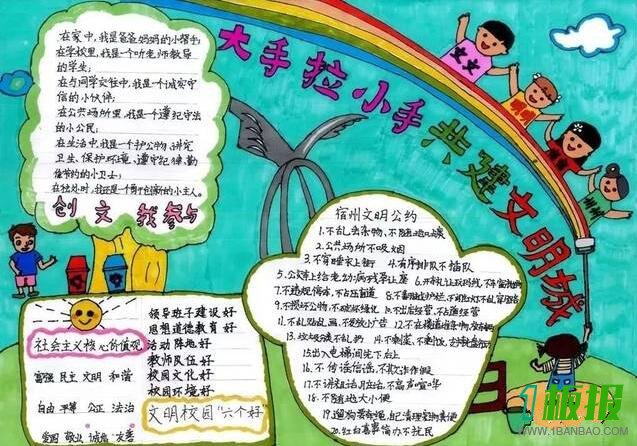 在家中，我是爸爸妈妈的小帮手；
在学校里，我是一个听老师教导
的学生；
在与同学交往中，我是一个诚实守
信的小伙伴；
在公共场所里，我是一个遵纪守法
的小公民；
在生活中，我是一个护公物，讲究
卫生，保护环境，遵守纪律，勤
俭节约的小卫士；
在独处时，我还是一个勇于创新的小主人。
创文我参与
大手拉小手共建文明城
文文
明明
州州
社会主义核心价值观
富强 民主 文明 和谐
自由 平等 公正 法治
爱国 敬业 诚信 友善
领导班子建设好
思想道德教育好
活动阵地好
教师队伍好
校园文化好
校园环境好
文明校园“六个好”
宿州文明公约
1.不乱丢杂物，不随地吐痰
2.公共场所不吸烟
3.不穿睡衣上街
4.有序排队不插队
5.公交车上给老幼病残孕让座
7.不违规停车，不占压盲道
9.不损坏公物，不破坏绿化
10.不出店经营，不占道经营
11.不乱贴乱画，不发放小广告
15.出入电梯间先下后上
16.不传谣信谣，不其
17.不讲粗话月，不高声喧哗
18.不随地大小便
19.遛狗要
20.红白喜事简办不扰民
1板报
WWW.1BANBAO.COM